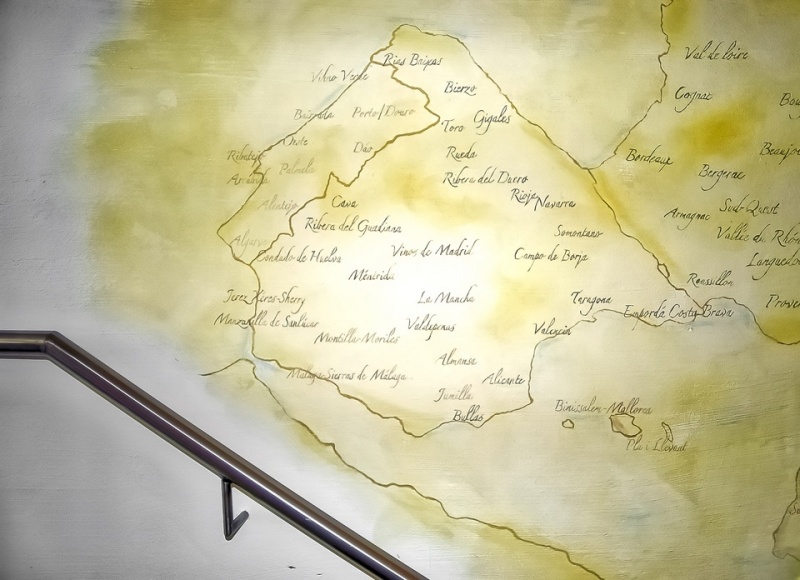 Rias Baixas
Vihno Verde
Bierzo
Bairrada
Porto/Douro
Toro
Gigales
Oeste
Dão
Rueda
Ribatejo
Palmela
Ribera del Durro
Alentejo
Cava
Rioja
Navarra
Ribera del Guadiana
Somontano
Algarve
Condado de Huelva
Vinos de Madrid
Campo de Borja
Méntrida
Jerez-Xéres-Sherry
La Mancha
Taragona
Empordá Costa Brava
Manzanilla de Sanlúcar
Montilla-Moriles
Valdepenas
Valencia
Almansa
Malaga-Sierras de Málaga
Alicante
Jumilla
Bullas
Binissalem-Mallorca
Pla i Llevant
Val de loire
Cognac
Bordeaux
Bergerac
Beaujo
Armagnac
Sud-Ouest
Vallée du Rhôn
Languedo
Roussillon
Prove